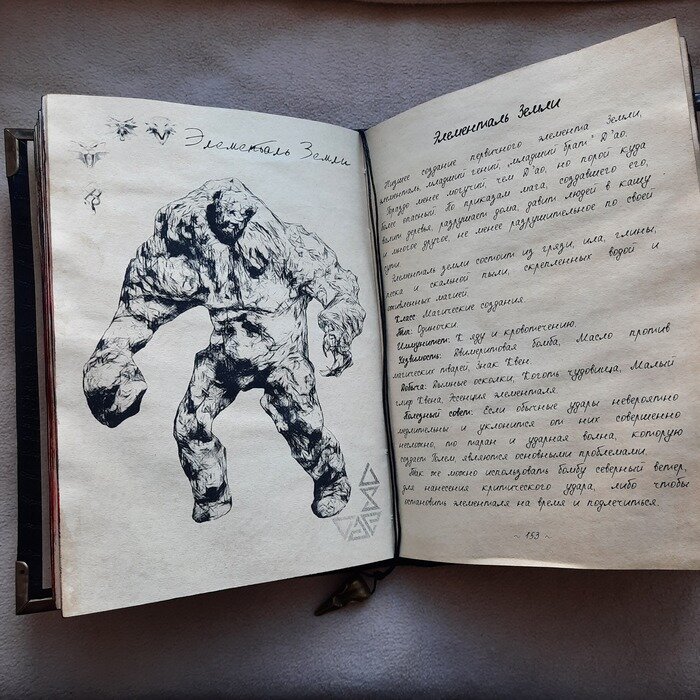 Элементаль Земли
Элементаль Земли
Низшее создание первичного элемента Земли,
элементаль, младший гений, „младший брат" Д'ао.
Гораздо менее могучий, чем Д'ао, но порой куда
более опасный. По приказам мага, создавшего его,
валит деревья, разрушает дома, давит людей в кашу
и многое другое, не менее разрушительное по своей
сути.
Элементаль земли состоит из грязи, ила, глины,
песка и скальной пыли, скреплённых водой и
оживленных магией.
Класс: Магические создания.
Тип: Одиночки.
Иммунитет: К яду и кровотечению.
Уязвимость: Двимеритовая бомба, Масло против
магических тварей, Знак Квен.
Добыча: Дымные осколки, Коготь чудовища, Малый
глиф Квена, Эссенция элементаля.
Полезный совет: Если обычные удары невероятно
медлительны и уклонится от них совершенно
несложно, то таран и ударная волна, которую
создает Голем, являются основными проблемами.
Так же можно использовать бомбу северный ветер,
для нанесения критического удара, либо чтобы
остановить элементаля на время и подлечиться.
~ 153 ~